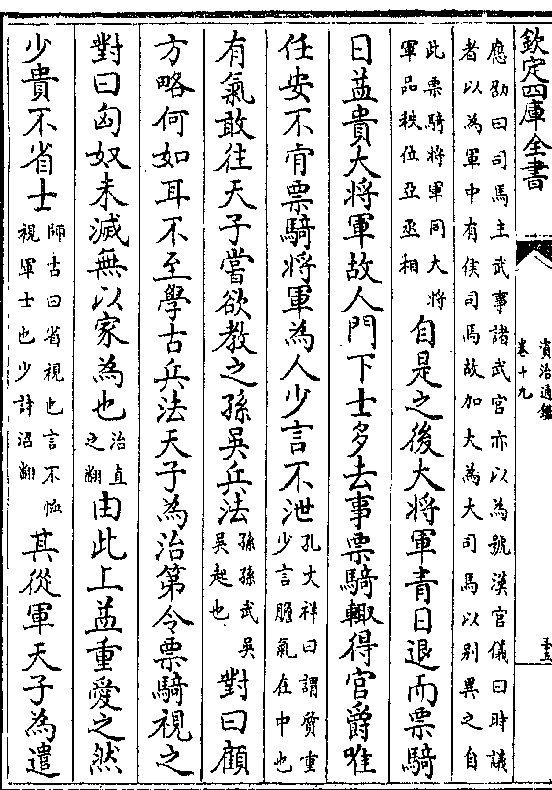 欽定四庫全書
資治通鑑
卷十九
應劭曰司馬主武事諸武官亦以為號漢官儀曰時議
者以為軍中有候司馬故加大為大司馬以别異之自
此票騎將軍同大將
軍品秩位亞丞相
自是之後大將軍青日退而票騎
日益貴大將軍故人門下士多去事票騎輙得官爵唯
任安不肯票騎將軍為人少言不泄
孔文祥曰謂質重
少言膽氣在中也
有氣敢往天子嘗欲教之孫吳兵法
孫孫武吳
吳起也
對曰顧
方略何如耳不至學古兵法天子為治第令票騎視之
對曰匈奴未滅無以家為也
治直
之翻
由此上益重愛之然
少貴不省士
師古曰省視也言不恤
視軍士也少詩沼翻
其從軍天子為遣